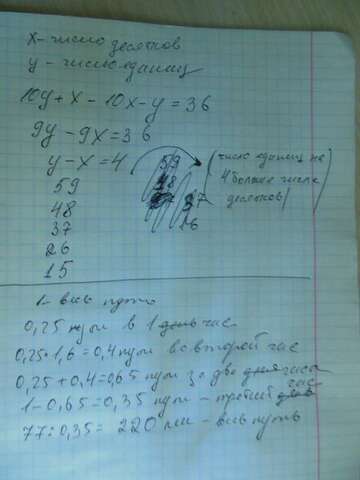 x - число десятков
y - число единиц
10y + x - 10x - y = 36
9y - 9x = 36
y - x = 4
(число единиц на
4 больше числа
десятков)
59
48
37
26
15
59
48
37
26
1 - весь путь
0,25 пути в 1 час
0,25 · 1,6 = 0,4 пути во второй час
0,25 + 0,4 = 0,65 пути за два часа
1 - 0,65 = 0,35 пути - третий час
77 : 0,35 = 220 км - весь путь